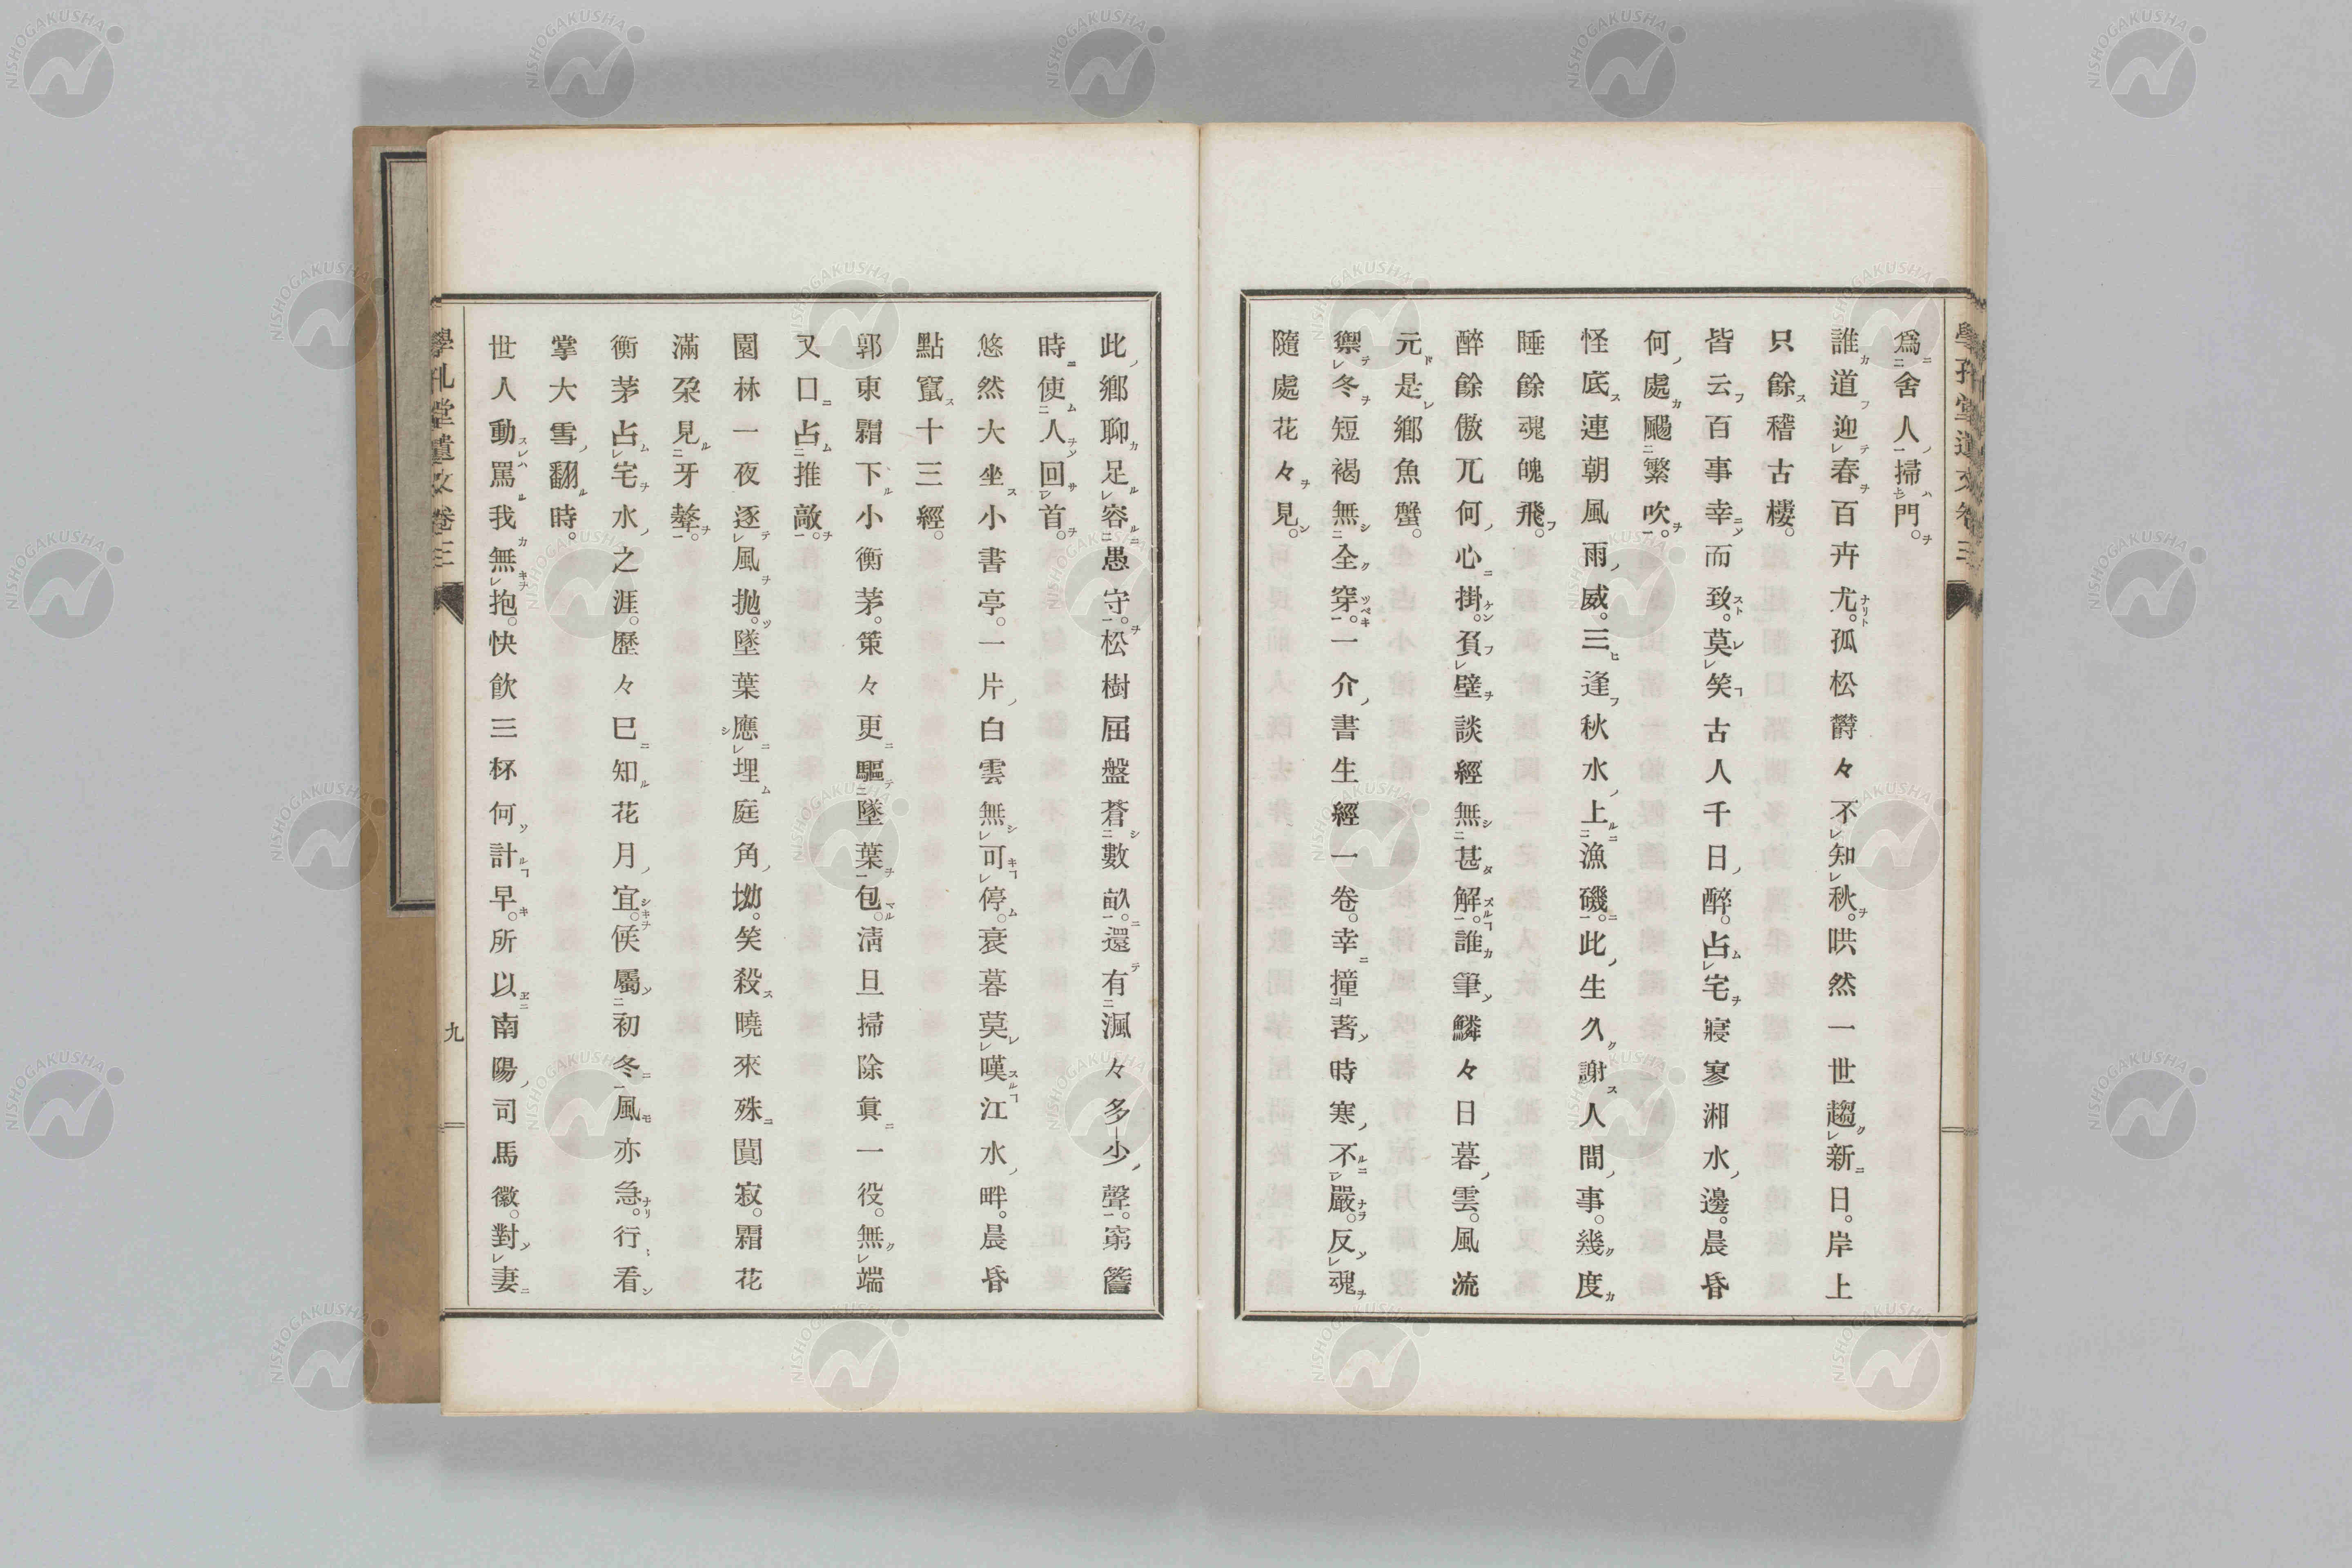 學孔堂遺文卷三
爲舍人掃門。
誰道迎春百卉尤。孤松欝々不知秋。哄然一世趨新日。岸上
只餘稽古樓。
皆云百事幸而致。莫笑古人千日醉。占宅寢寥湘水邊。晨昏
何處颺繁吹。
怪底連朝風雨威。三逢秋水上漁磯。此生久謝人間事。幾度
睡餘魂魄飛。
醉餘傲兀何心掛。負壁談經無甚解。誰筆鱗々日暮雲。風流
元是鄉魚蟹。
禦冬短褐無全穿。一介書生經一卷。幸撞著時寒不嚴。反魂
隨處花々見。
此鄉聊足容愚守。松樹屈盤蒼數畝。還有渢々多少聲。窮簷
時使人回首。
悠然大坐小書亭。一片白雲無可停。衰暮莫嘆江水畔。晨昏
點竄十三經。
郭東霜下小衡茅。策々更驅墜葉包。淸旦掃除眞一役。無端
又口占推敲。
園林一夜逐風抛。墜葉應埋庭角坳。笑殺曉來殊闃寂。霜花
滿朶見牙謷。
衡茅占宅水之涯。歷々巳知花月宜。候屬初冬風亦急。行看
掌大雪翻時。
世人動罵我無抱。快飮三杯何計早。所以南陽司馬徽。對妻
學孔堂遺文卷三
九
NISHOGAKUSHA